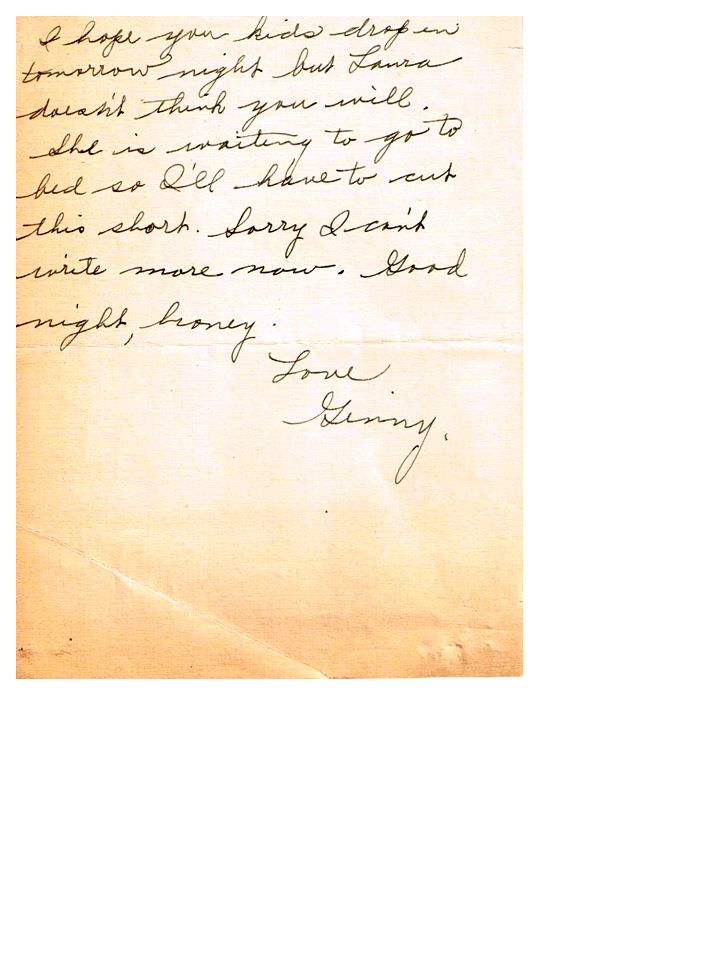 I hope you kids drop in
tomorrow night but Laura
doesn't think you will.
She is waiting to go to
bed so I'll have to cut
this short. Sorry I can't
write more now. Good
night, honey.
Love
Ginny.